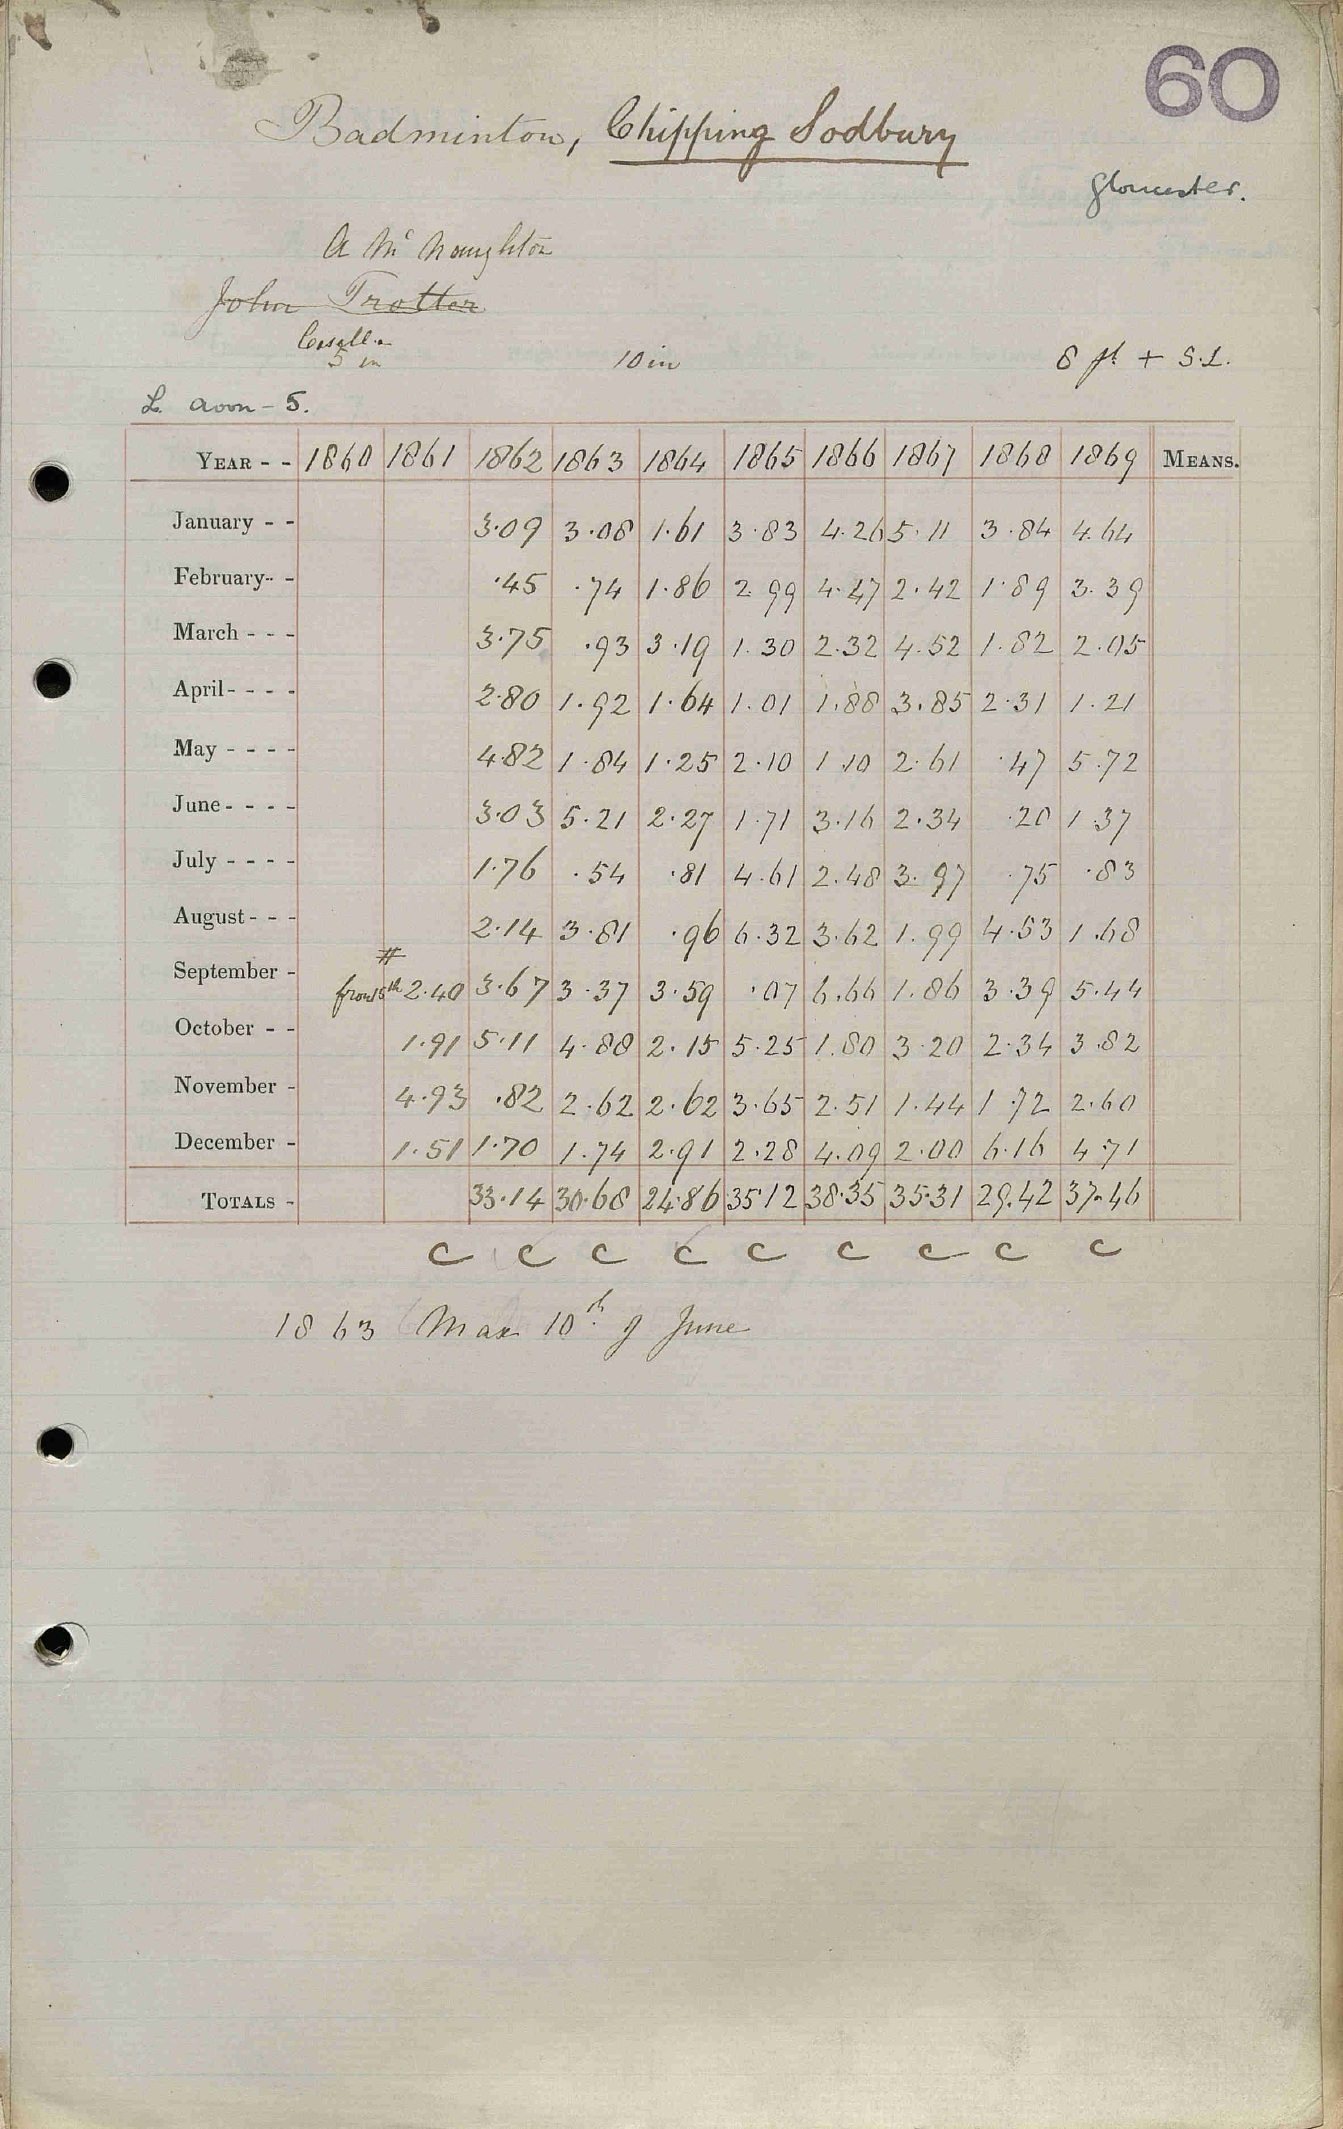 60
Badminton, Chipping Sodbury
Gloucester.
A Mc Naughton
John Trotter
Casella
5 in 10 in 8 ft + S.L.
L. Avon - 5.
YEAR - - 1860 1861 1862 1863 1864 1865 1866 1867 1868 1869 MEANS.
January - - 3.09 3.08 1.61 3.83 4.26 5.11 3.84 4.64
February - - .45 .74 1.86 2.99 4.47 2.42 1.89 3.39
March - - - 3.75 .93 3.19 1.30 2.32 4.52 1.82 2.05
April - - - - 2.80 1.92 1.64 1.01 1.88 3.85 2.31 1.21
May - - - - 4.82 1.84 1.25 2.10 1.10 2.61 .47 5.72
June - - - - 3.03 5.21 2.27 1.71 3.16 2.34 .20 1.37
July - - - - 1.76 .54 .81 4.61 2.48 3.97 .75 .83
August - - - 2.14 3.81 .96 6.32 3.62 1.99 4.53 1.68
#
September - from 5th 2.40 3.67 3.37 3.59 .07 6.66 1.86 3.39 5.44
October - - 1.91 5.11 4.88 2.15 5.25 1.80 3.20 2.34 3.82
November - 4.93 .82 2.62 2.62 3.65 2.51 1.44 1.72 2.60
December - 1.51 1.70 1.74 2.91 2.28 4.09 2.00 6.16 4.71
TOTALS - 33.14 30.68 24.86 35.12 38.35 35.31 29.42 37.46
C C C C C C C C C
1863 Max 10th of June